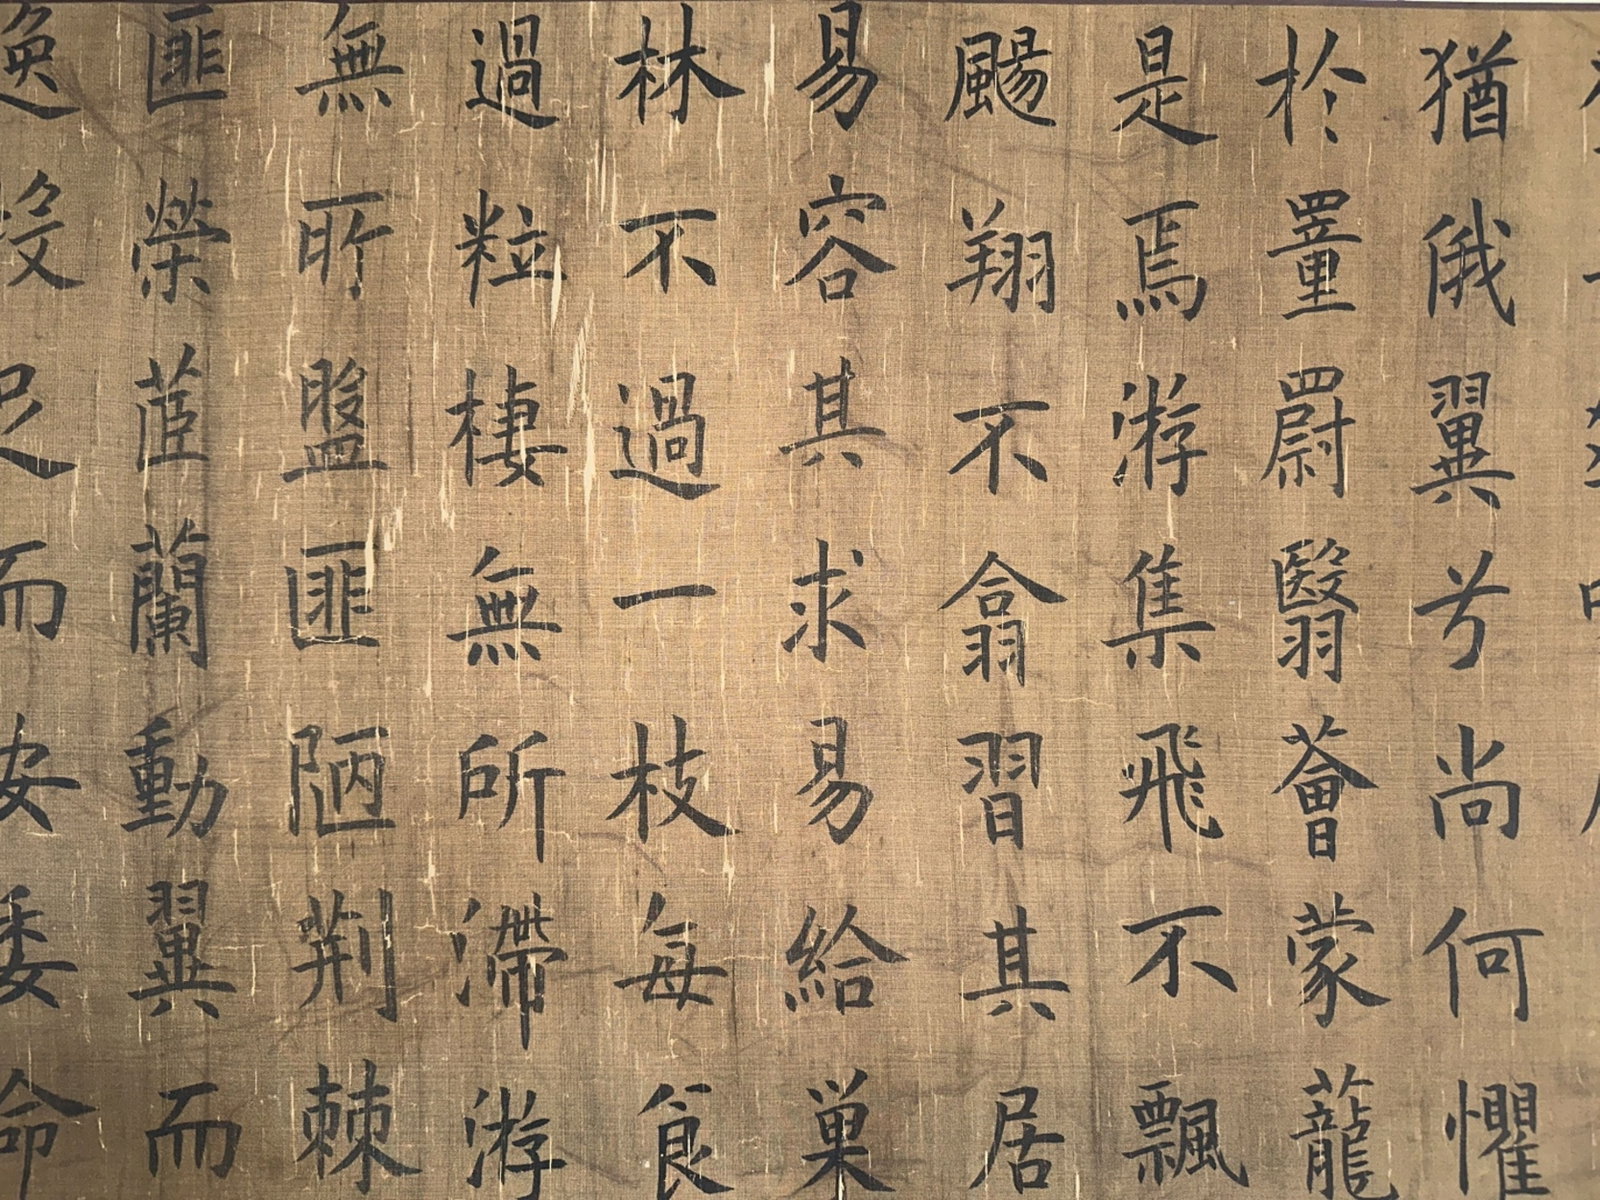 猶俄翼兮尚何懼
於罿罻翳薈蒙蘢
是焉游集飛不飄
颺翔不翕習其居
易容其求易給巢
林不過一枝每食
過粒棲無所滯游
無所盤匪陋荆棘
匪榮茝蘭動翼而
逸投足而安委命